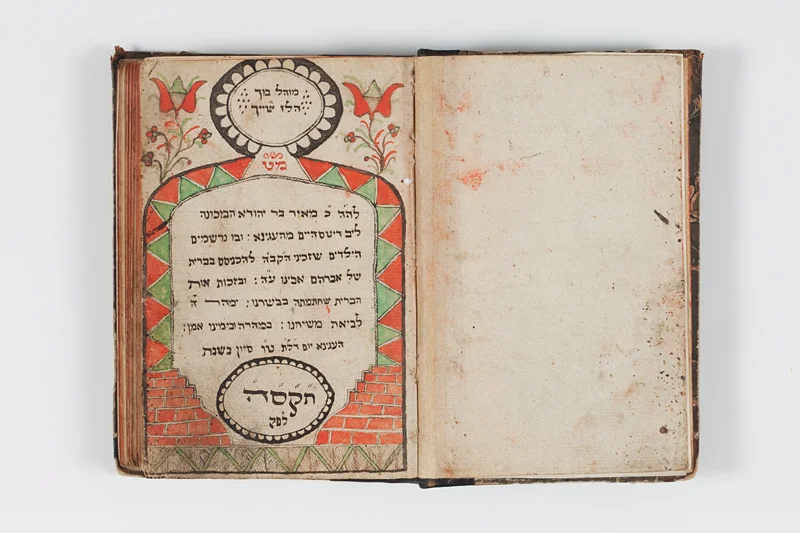 מוהל בוך
הלז שייך
מט
להה כ מאיר בר יהודא המכונה
ליב דיטסהיים מהעגינא : ובו נרשמים
הילדים שזכיני הקבה להכניסם בברית
של אברהם אבינו עה : ובזכות אות
הברית שחתמתה בבשרנו : ימהר ה
לביאת משיחנו : במהרה ובימינו אמן :
העגינא יום דלת טו סיון בשנת
תקסה
לפק